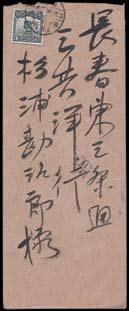 長春東三條通
三共洋行
杉浦勘次郎様